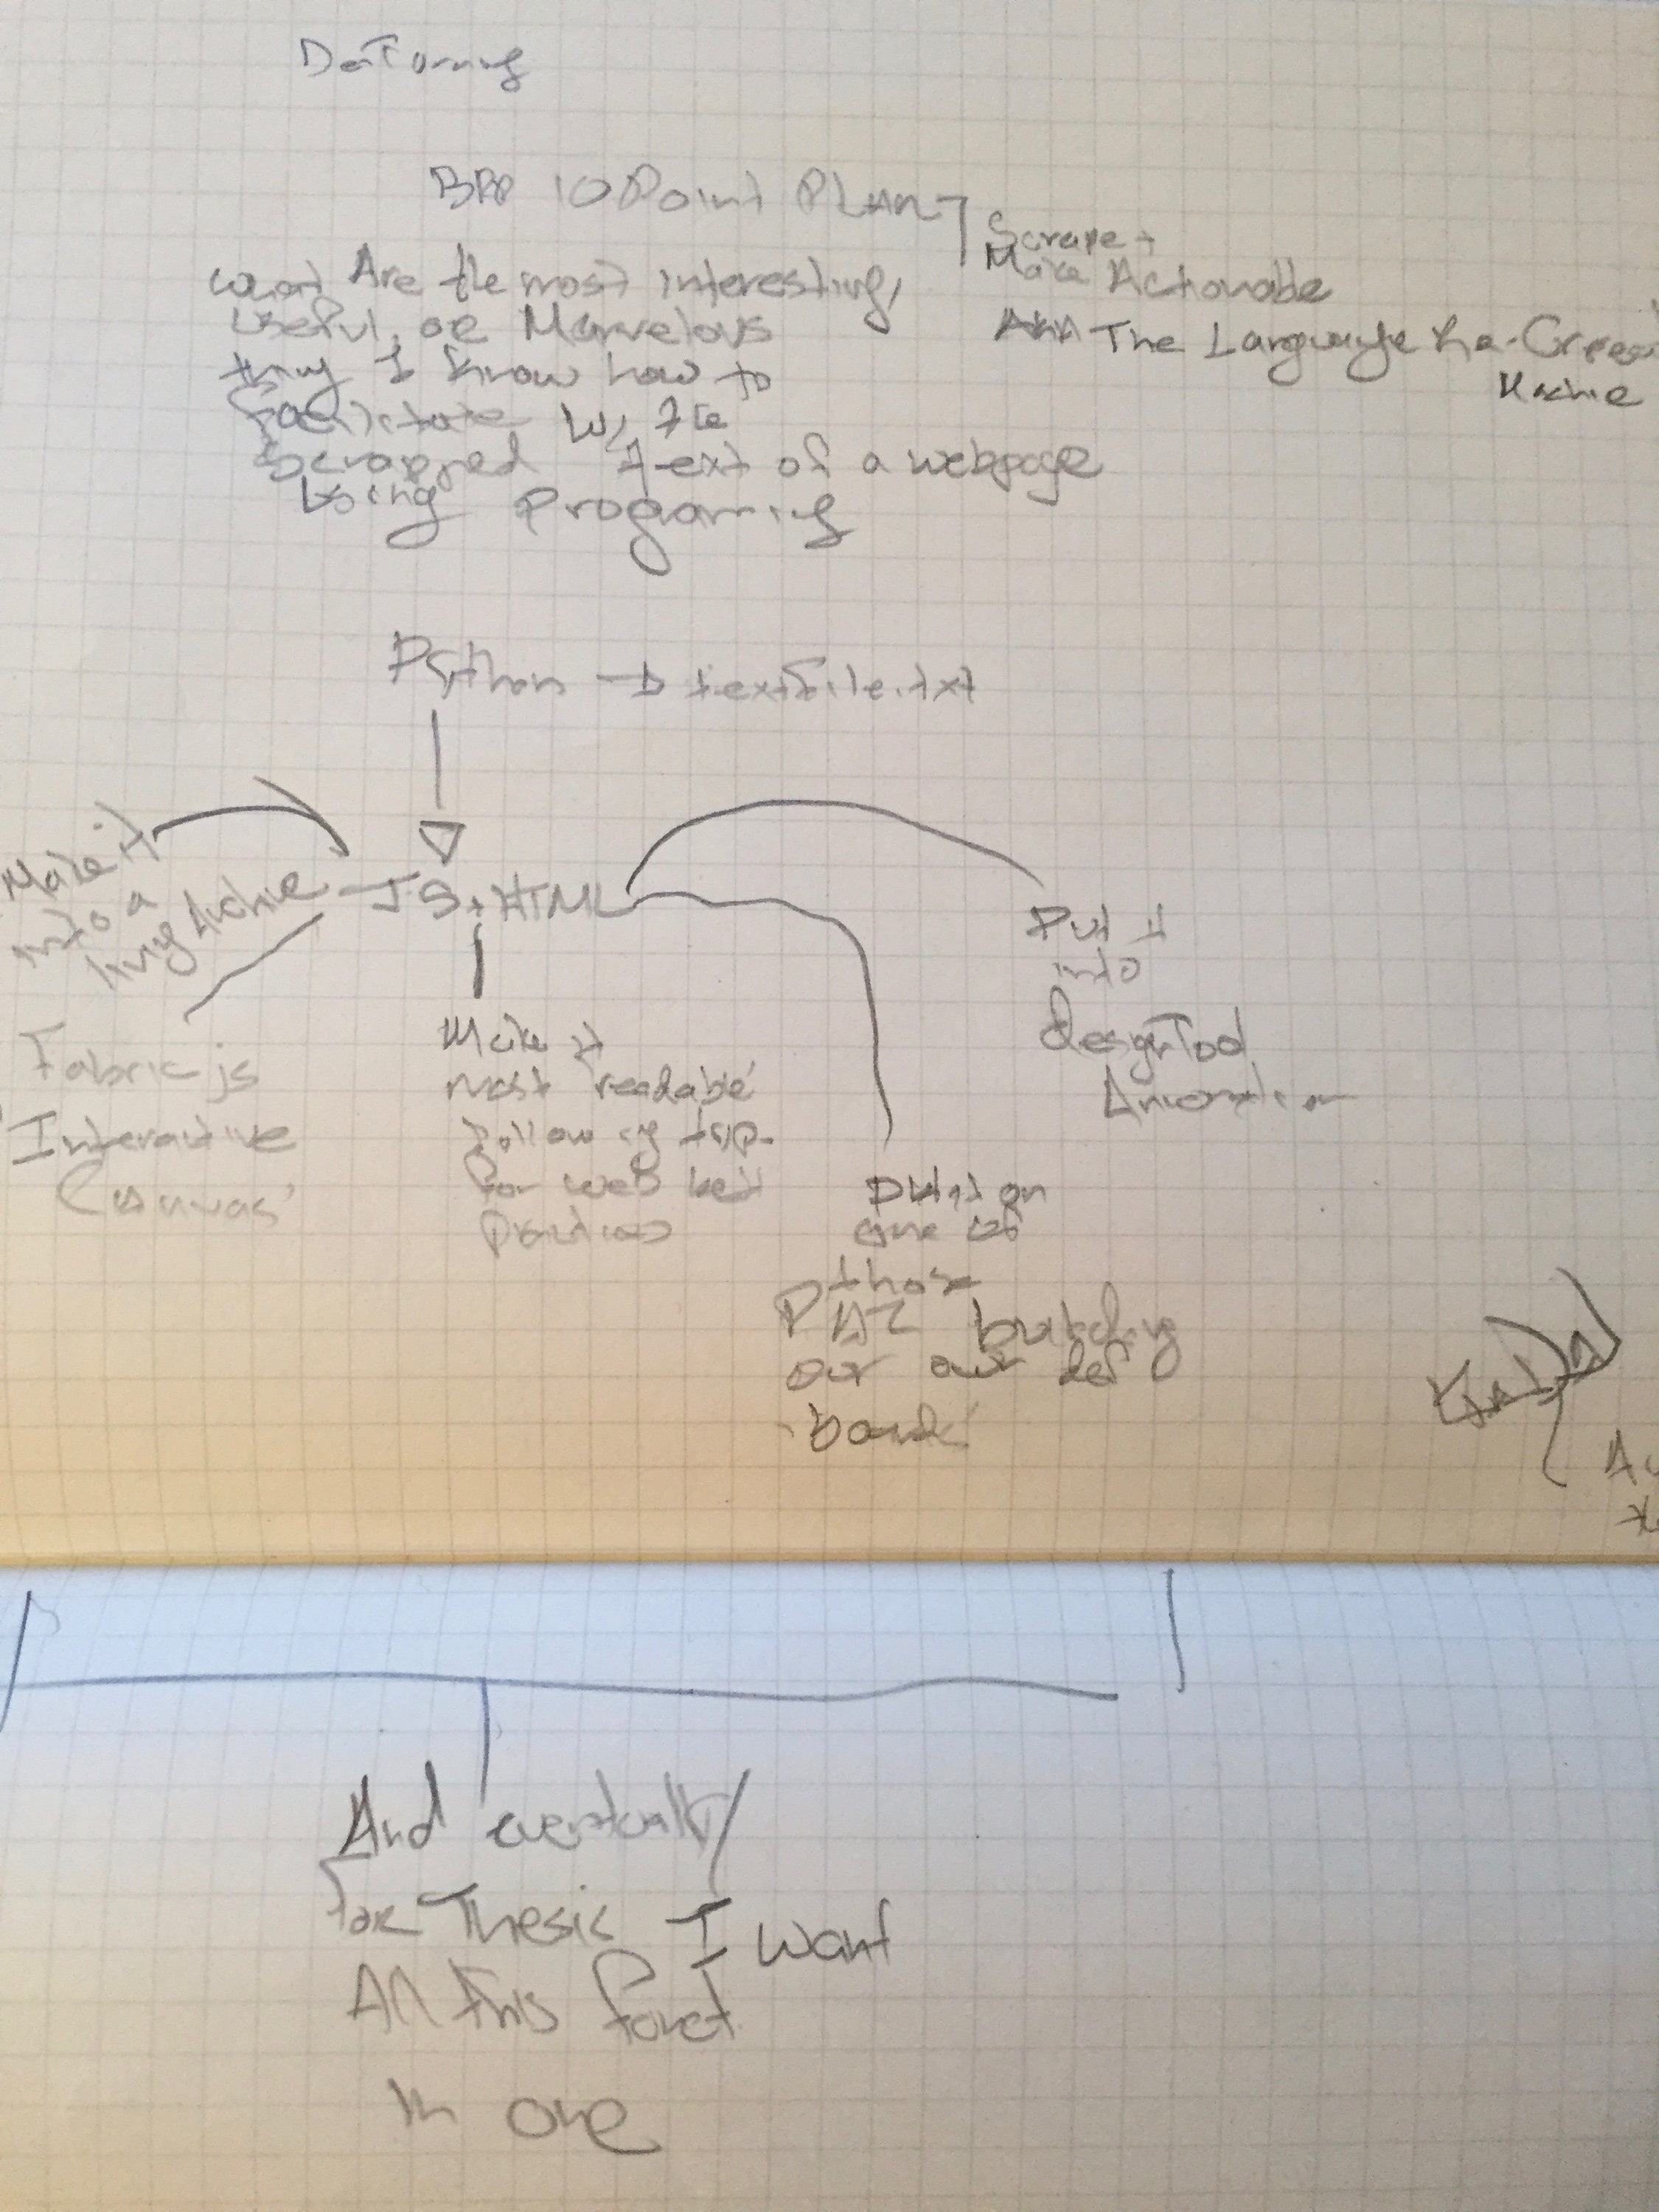 10 Point PLAN
Scrape +
Make Actionable
AKA The Language Re-
What Are the most interesting,
useful, or Marvelous
thing I know how to
facilitate w/ the
Scrapped text of a webpage
Using Programing
Python → textfile.txt
Make it
into a
living Archive
JS + HTML
Put it
into
DesignTool
Fabric js
Interactive
Canvas'
Make it
most 'readable'
following
for web best
practices
Put it on
one of
those
our own
And eventually
for Thesis I want
All this
in one